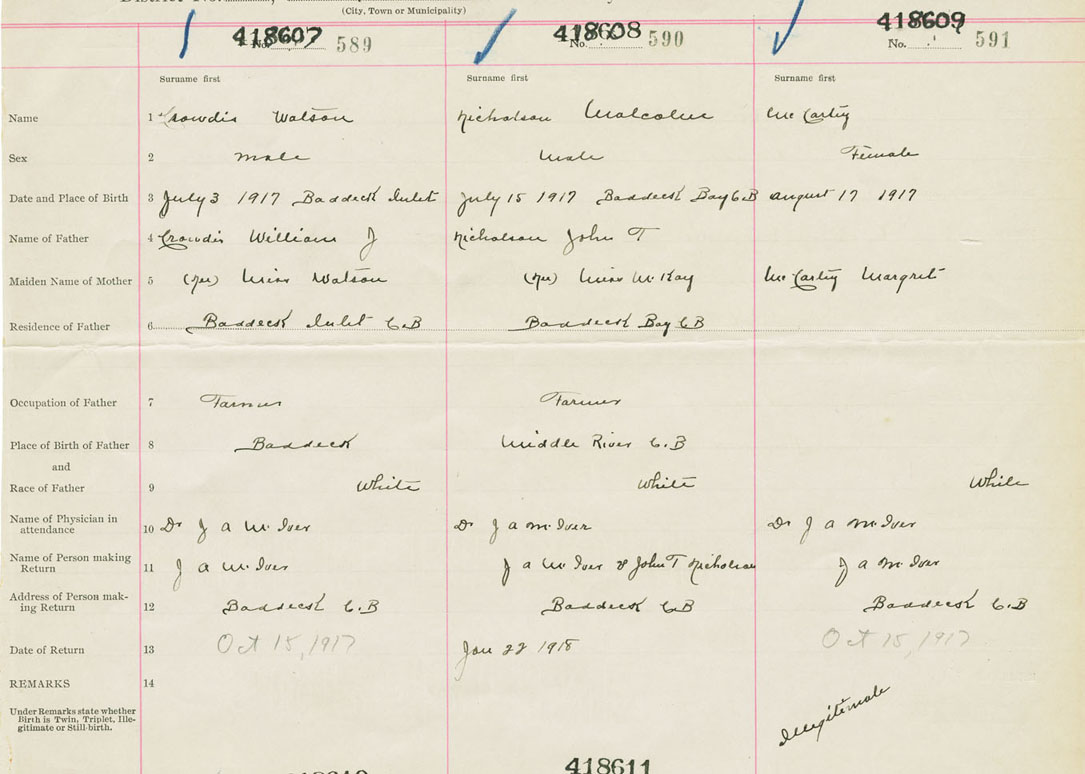 (City, Town or Municipality)
418607 418608 418609
No. 589 No. 590 No. 591
Surname first Surname first Surname first
Name 1 Crowdis Watson Nicholson Malcolm McCarty
Sex 2 male male Female
Date and Place of Birth 3 July 3 1917 Baddeck Inlet July 15 1917 Baddeck Bay C B august 17 1917
Name of Father 4 Crowdis William J Nicholson John T
Maiden Name of Mother 5 (nee) Miss Watson (nee) Miss McKay McCarty Margret
Residence of Father 6 Baddeck Inlet C.B Baddeck Bay C B
Occupation of Father 7 Farmer Farmer
Place of Birth of Father 8 Baddeck Middle River C.B
and
Race of Father 9 White White White
Name of Physician in
attendance 10 Dr J a McIver Dr J a McIver Dr J a McIver
Name of Person making
Return 11 J a McIver J a McIver & John T Nicholson J a McIver
Address of Person mak-
ing Return 12 Baddeck C.B Baddeck C B Baddeck C.B
Date of Return 13 Oct 15, 1917 Jan 22 1918 Oct 15, 1917
REMARKS 14
Under Remarks state whether
Birth is Twin, Triplet, Ille-
gitimate or Still-birth.
Illegitimate
418611